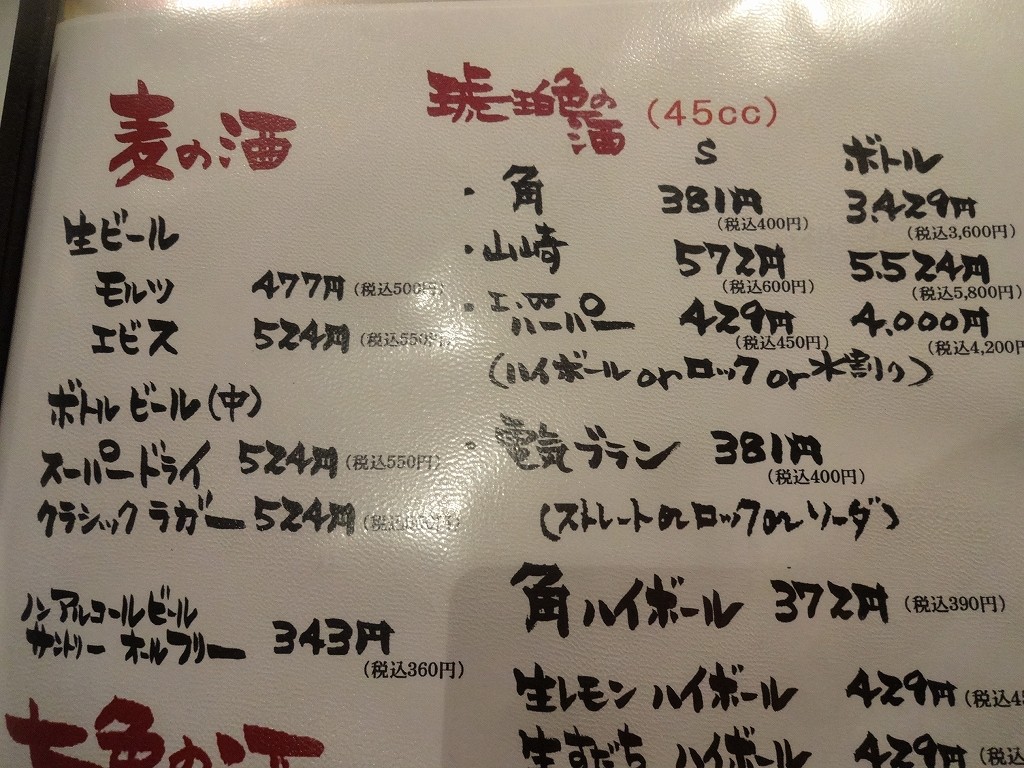 麦の酒
生ビール
モルツ 477円 (税込500円)
エビス 524円 (税込550円)
ボトルビール(中)
スーパードライ 524円 (税込550円)
クラシックラガー 524円
ノンアルコールビール
サントリー オールフリー 343円
(税込360円)
色の酒
琥珀色の酒 (45cc)
S ボトル
・角 381円 3.429円
(税込400円) (税込3,600円)
・山崎 572円 5.524円
(税込600円) (税込5,800円)
・エーパーパー 429円 4.000円
(税込450円) (税込4,200円
(ハイボール or ロック or 水割り)
・電気ブラン 381円
(税込400円)
(ストレート or ロック or ソーダ)
角ハイボール 372円 (税込390円)
生レモンハイボール 429円 (税込45
生すだちハイボール 429円 (税込